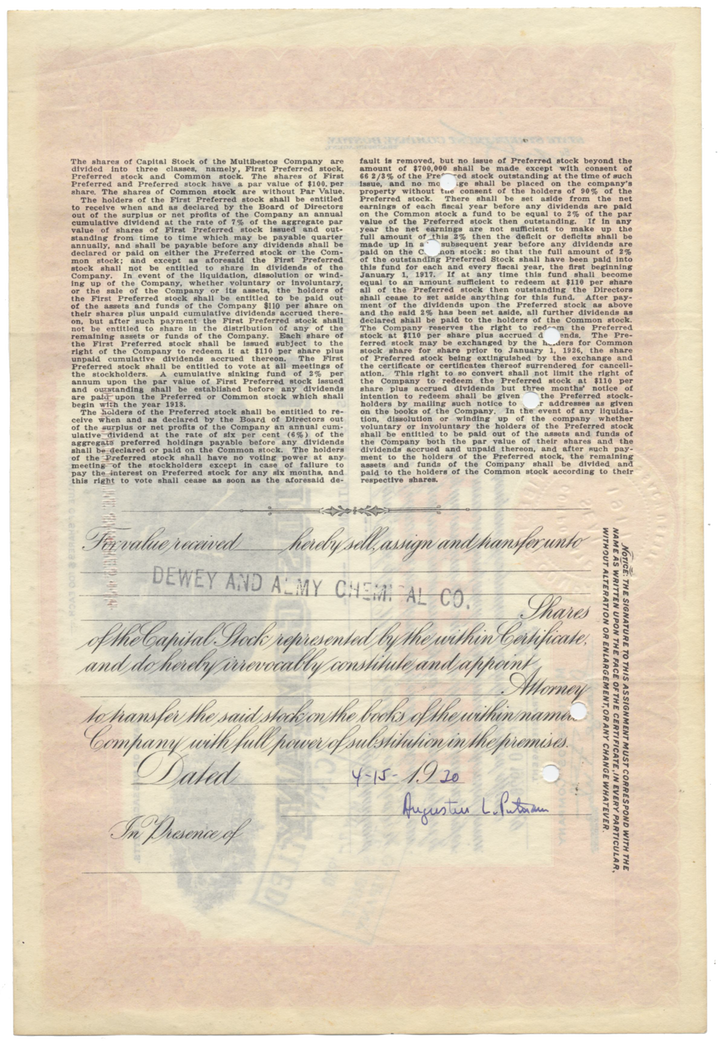 The shares of Capital Stock of the Multibestos Company are
divided into three classes, namely, First Preferred stock,
Preferred stock and Common stock. The shares of First
Preferred and Preferred stock have a par value of $100, per
share. The shares of Common stock are without Par Value.
The holders of the First Preferred stock shall be entitled
to receive when and as declared by the Board of Directors
out of the surplus or net profits of the Company an annual
cumulative dividend at the rate of 7% of the aggregate par
value of shares of First Preferred stock issued and out-
standing from time to time which may be payable quarter
annually, and shall be payable before any dividends shall be
declared or paid on either the Preferred stock or the Com-
mon stock; and except as aforesaid the First Preferred
stock shall not be entitled to share in dividends of the
Company. In event of the liquidation, dissolution or wind-
ing up of the Company, whether voluntary or involuntary,
or the sale of the Company or its assets, the holders of
the First Preferred stock shall be entitled to be paid out
of the assets and funds of the Company $110 per share on
their shares plus unpaid cumulative dividends accrued there-
on, but after such payment the First Preferred stock shall
not be entitled to share in the distribution of any of the
remaining assets or funds of the Company. Each share of
the First Preferred stock shall be issued subject to the
right of the Company to redeem it at $110 per share plus
unpaid cumulative dividends accrued thereon. The First
Preferred stock shall be entitled to vote at all meetings of
the stockholders. A cumulative sinking fund of 3% per
annum upon the par value of First Preferred stock issued
and outstanding shall be established before any dividends
are paid upon the Preferred or Common stock which shall
begin with the year 1918.
The holders of the Preferred stock shall be entitled to re-
ceive when and as declared by the Board of Directors out
of the surplus or net profits of the Company an annual cum-
ulative dividend at the rate of six per cent (6%) of the
aggregate preferred holdings payable before any dividends
shall be declared or paid on the Common stock. The holders
of the Preferred stock shall have no voting power at any
meeting of the stockholders except in case of failure to
pay the interest on Preferred stock for any six months, and
this right to vote shall cease as soon as the aforesaid de-
fault is removed, but no issue of Preferred stock beyond the
amount of $700,000 shall be made except with consent of
66 2/3% of the Pref ed stock outstanding at the time of such
issue, and no m ge shall be placed on the company's
property without the consent of the holders of 90% of the
Preferred stock. There shall be set aside from the net
earnings of each fiscal year before any dividends are paid
on the Common stock a fund to be equal to 2% of the par
value of the Preferred stock then outstanding. If in any
year the net earnings are not sufficient to make up the
full amount of this 2% then the deficit or deficits shall be
made up in a subsequent year before any dividends are
paid on the C on stock: so that the full amount of 2%
of the outstanding Preferred Stock shall have been paid into
this fund for each and every fiscal year, the first beginning
January 1, 1917. If at any time this fund shall become
equal to an amount sufficient to redeem at $110 per share
all of the Preferred stock then outstanding the Directors
shall cease to set aside anything for this fund. After pay-
ment of the dividends upon the Preferred stock as above
and the said 2% has been set aside, all further dividends as
declared shall be paid to the holders of the Common stock.
The Company reserves the right to redeem the Preferred
stock at $110 per share plus accrued d ends. The Pre-
ferred stock may be exchanged by the h lders for Common
stock share for share prior to January 1, 1926, the share
of Preferred stock being extinguished by the exchange and
the certificate or certificates thereof surrendered for cancell-
ation. This right to convert shall not limit the right of
the Company to redeem the Preferred Stock at $110 per
share plus accrued dividends but three months' notice of
intention to redeem shall be given the Preferred stock-
holders by mailing such notice to r addresses as given
on the books of the Company. In the event of any liquida-
tion, dissolution or winding up of the company whether
voluntary or involuntary the holders of the Preferred stock
shall be entitled to be paid out of the assets and funds of
the Company both the par value of their shares and the
dividends accrued and unpaid thereon, and after such pay-
ment to the holders of the Preferred stock, the remaining
assets and funds of the Company shall be divided and
paid to the holders of the Common stock according to their
respective shares.
For value received hereby sell, assign and transfer unto
DEWEY AND ALMY CHEMICAL CO.
Shares
of the Capital Stock represented by the within Certificate,
and do hereby irrevocably constitute and appoint
Attorney
to transfer the said stock on the books of the within named
Company with full power of substitution in the premises.
Dated 4-15- 1920
Augustus L. Putnam
In Presence of
NOTICE: THE SIGNATURE TO THIS ASSIGNMENT MUST CORRESPOND WITH THE
NAME AS WRITTEN UPON THE FACE OF THE CERTIFICATE, IN EVERY PARTICULAR,
WITHOUT ALTERATION OR ENLARGEMENT, OR ANY CHANGE WHATEVER.